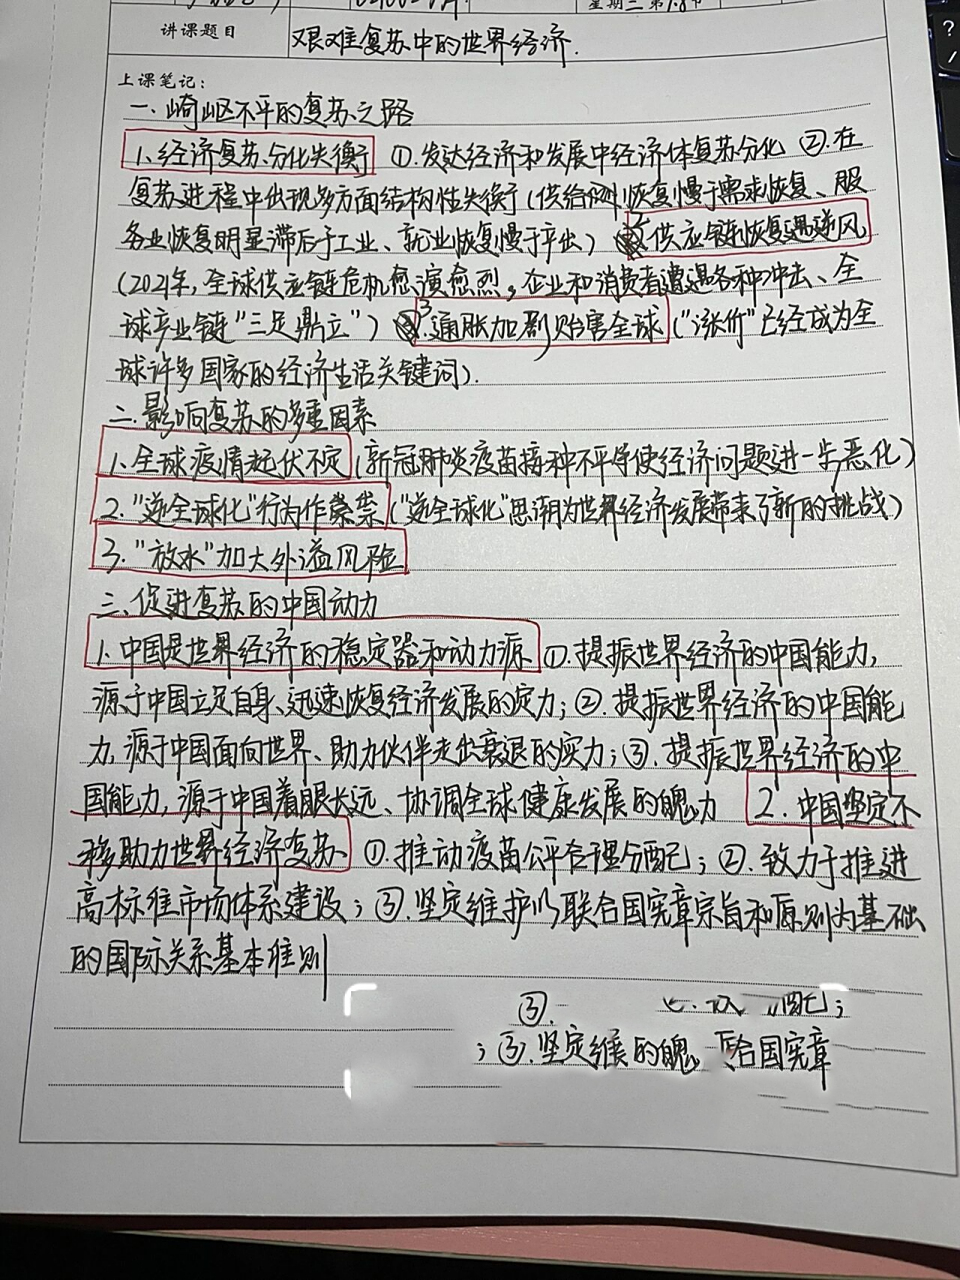 星期三 第7.8节
讲课题目
艰难复苏中的世界经济.
上课笔记:
一、崎岖不平的复苏之路
1.经济复苏分化失衡 ①.发达经济和发展中经济体复苏分化 ②.在
复苏进程中出现多方面结构性失衡(供给侧恢复慢于需求恢复、服
务业恢复明显滞后于工业、就业恢复慢于产出) 2.供应链恢复遇逆风
(2021年,全球供应链危机愈演愈烈,企业和消费者遭遇各种冲击、全
球产业链“三足鼎立”) 3.通胀加剧,贻害全球(“涨价”已经成为全
球许多国家的经济生活关键词).
二、影响复苏的多重因素
1.全球疫情起伏不定(新冠肺炎疫苗接种不平等使经济问题进一步恶化)
2.“逆全球化”行为作祟(“逆全球化”思潮为世界经济发展带来了新的挑战)
3.“放水”加大外溢风险
三、促进复苏的中国动力
1.中国是世界经济的稳定器和动力源 ①.提振世界经济的中国能力,
源于中国立足自身、迅速恢复经济发展的定力;②.提振世界经济的中国能
力,源于中国面向世界、助力伙伴走出衰退的实力;③.提振世界经济的中
国能力,源于中国着眼长远、协调全球健康发展的魄力 2.中国坚定不
移助力世界经济复苏 ①.推动疫苗公平合理分配;②.致力于推进
高标准市场体系建设;③.坚定维护以联合国宪章宗旨和原则为基础
的国际关系基本准则
③. 配;
;③.坚定 展的魄 合国宪章